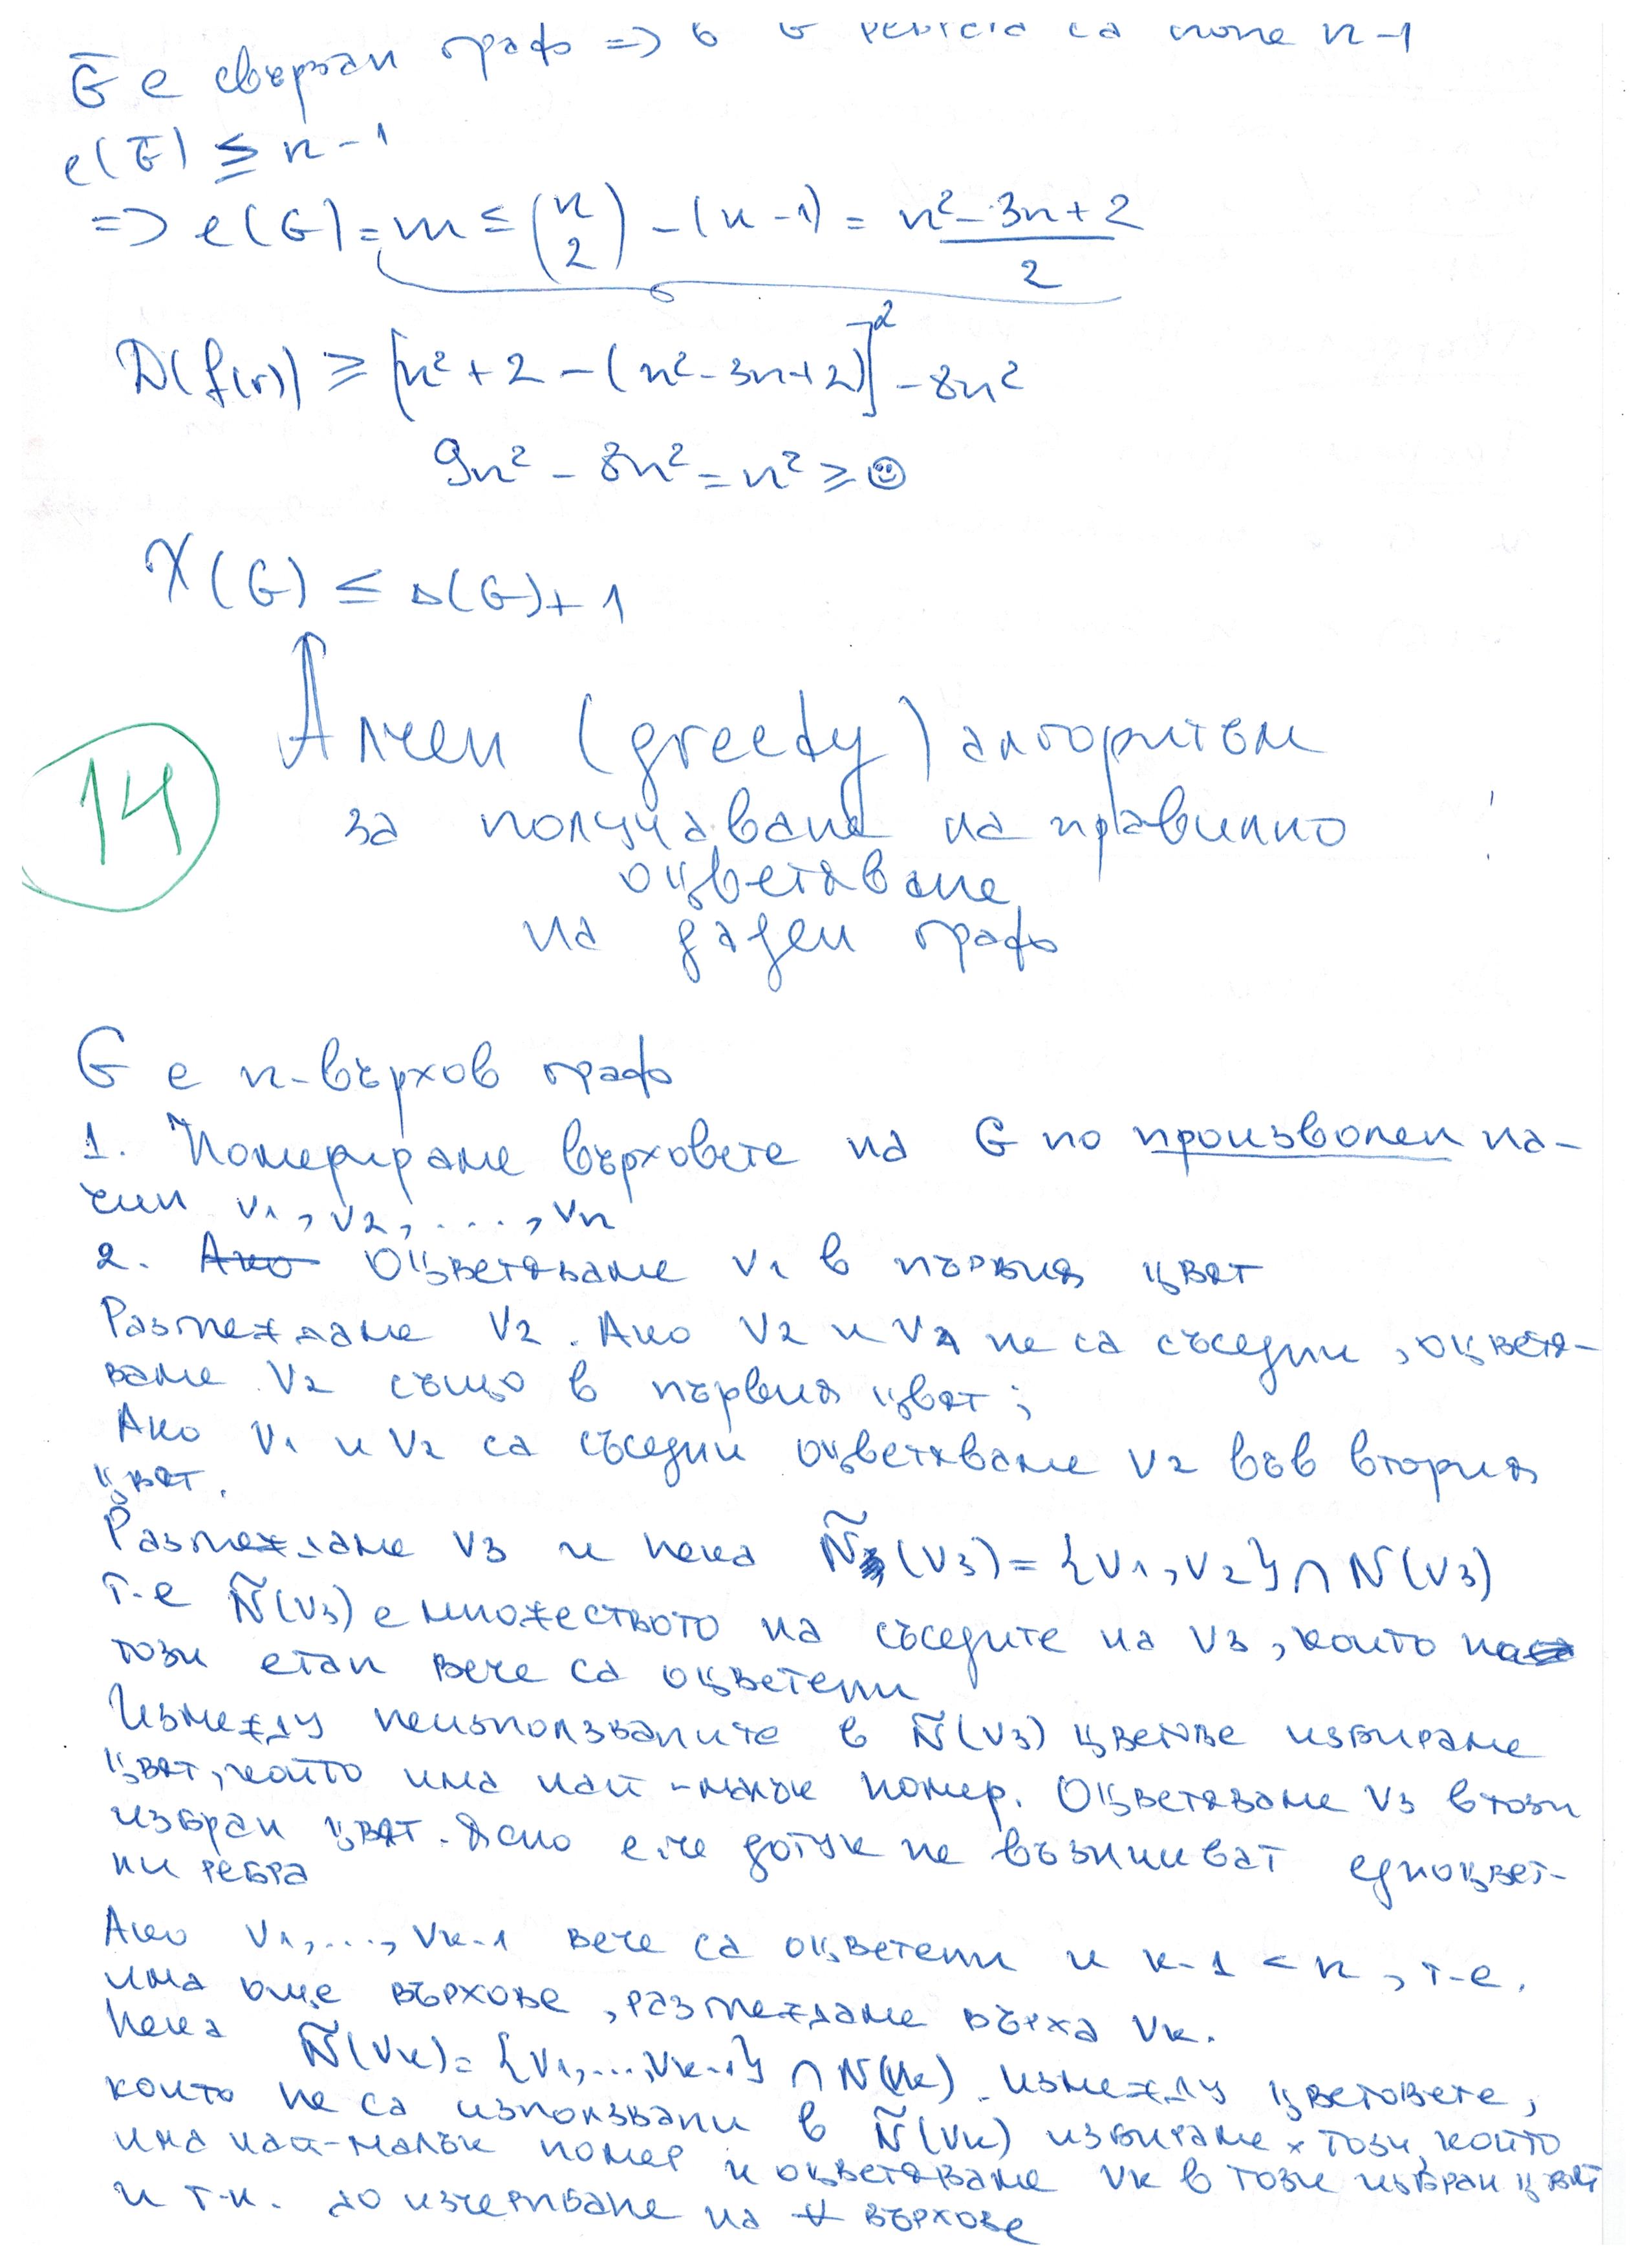 Ḡ е свързан граф => в Ḡ ребрата са поне n-1
e(Ḡ) ≥ n-1
=> e(G) = m ≤ (n 2) - (n-1) = n²-3n+2 / 2
D(f(r)) ≥ [n²+2-(n²-3n+2)]² - 8n²
9n² - 8n² = n² ≥ ☺
χ(G) ≤ Δ(G)+1
Алчен (greedy) алгоритъм
14
за получаване на правилно
оцветяване
на даден граф
G е n-върхов граф
1. Номерираме върховете на G по произволен на-
чин v1, v2, ..., vn
2. Ако Оцветяваме v1 в първия цвят
Разглеждаме v2. Ако v2 и v1 не са съседни, оцветя-
ваме v2 също в първия цвят;
Ако v1 и v2 са съседни оцветяваме v2 във втория
цвят.
Разглеждаме v3 и нека Ñ(v3) = {v1, v2} ∩ N(v3)
т.е Ñ(v3) е множеството на съседите на v3, които на
този етап вече са оцветени
Измежду неизползваните в Ñ(v3) цветове избираме
цвят, който има най-малък номер. Оцветяваме v3 в този
избран цвят. Ясно е.че дотук не възникват едноцвет-
ни ребра
Ако v1, ..., vk-1 вече са оцветени и k-1 < n, т.е.
има още върхове, разглеждаме върха vk.
Нека Ñ(vk) = {v1, ..., vk-1} ∩ N(vk). Измежду цветовете,
които не са използвани в Ñ(vk) избираме този, който
има най-малък номер и оцветяваме vk в този избран цвят
и т.н. до изчерпване на ∀ върхове